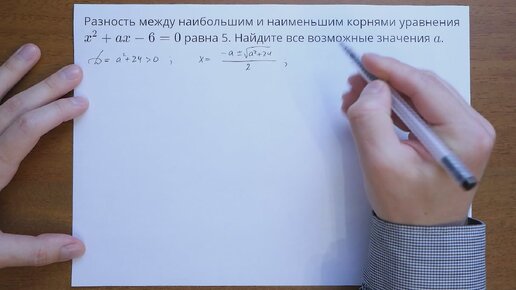 Разность между наибольшим и наименьшим корнями уравнения
x² + ax − 6 = 0 равна 5. Найдите все возможные значения a.
D = a² + 24 > 0 ; x = (−a ± √(a² + 24)) / 2 ;